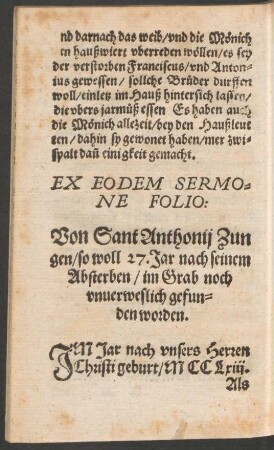 nd darnach das weib/vnd die Mönich
en haußwiert vberreden wöllen/es sey
der verstorben Franciscus/vnd Anton-
ius gewessen/ sollche Brüder durffen
woll/einletz im Hauß hinersich lasten/
die vbers jarmüß essen Es haben auch
die Mönich allezeit/bey den Haußleut
ten/dahin sy gewonet haben/mer zwi-
spalt dañ einigkeit gemacht.
EX EODEM SERMO-
NE FOLIO:
Von Sant Anthonij Zun
gen/so woll 27. Jar nach seinem
Absterben/im Grab noch
vnuerweslich gefun-
den worden.
IM Jar nach vnsers Herren
Christi geburt/MCCLxiij.
Als